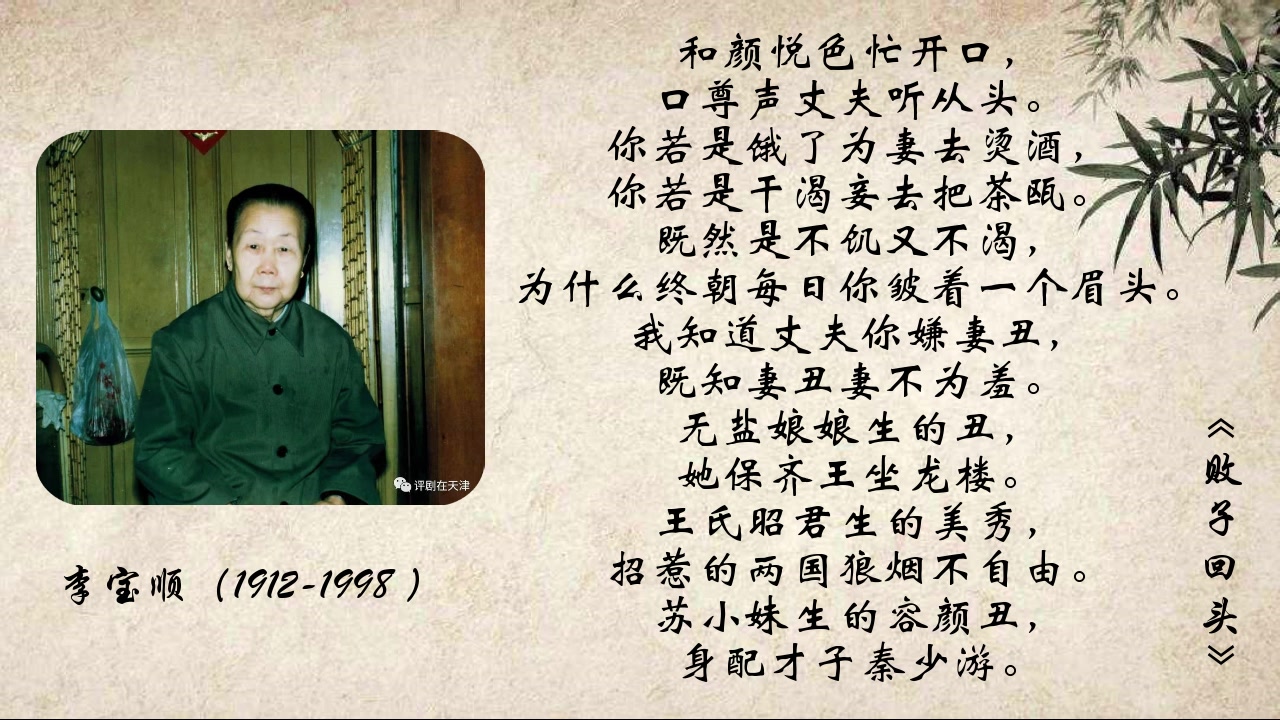 和颜悦色忙开口，
口尊声丈夫听从头。
你若是饿了为妻去烫酒，
你若是干渴妾去把茶瓯。
既然是不饥又不渴，
为什么终朝每日你皱着一个眉头。
我知道丈夫你嫌妻丑，
既知妻丑妻不为羞。
无盐娘娘生的丑，
她保齐王坐龙楼。
王氏昭君生的美秀，
招惹的两国狼烟不自由。
苏小妹生的容颜丑，
身配才子秦少游。
《败子回头》
评剧在天津
李宝顺（1912-1998）